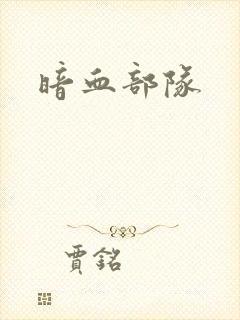 暗血部隊
賈銘